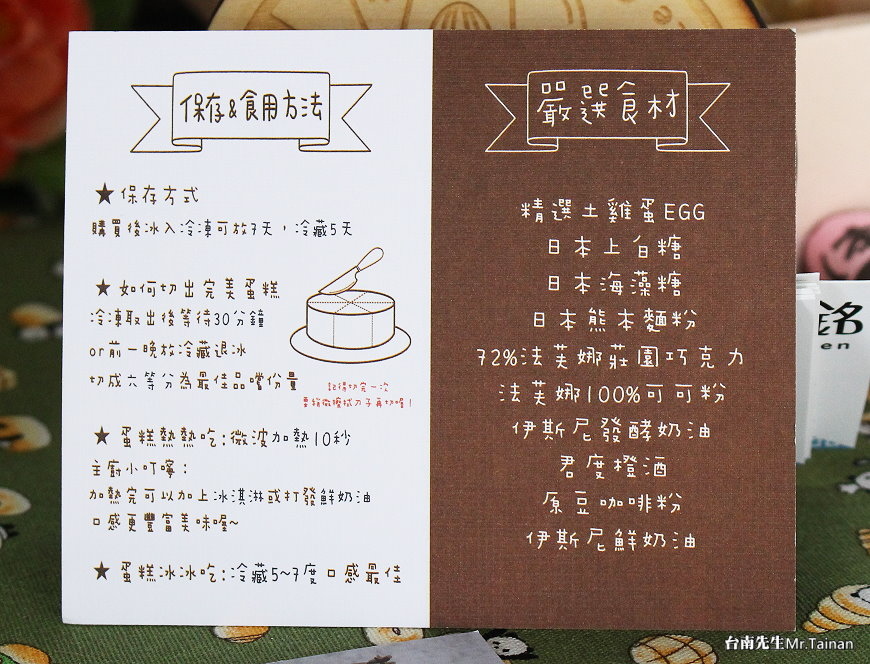 保存&食用方法
★保存方式
購買後冰入冷凍可放7天，冷藏5天
★如何切出完美蛋糕
冷凍取出後等待30分鐘
or前一晚放冷藏退冰
切成六等分為最佳品嚐份量
記得切完一次
要稍微擦拭刀子再切喔！
★蛋糕熱熱吃:微波加熱10秒
主廚小叮嚀：
加熱完可以加上冰淇淋或打發鮮奶油
口感更豐富美味喔~
★蛋糕冰冰吃:冷藏5~7度口感最佳
嚴選食材
精選土雞蛋EGG
日本上白糖
日本海藻糖
日本熊本麵粉
72%法芙娜莊園巧克力
法芙娜100%可可粉
伊斯尼發酵奶油
君度橙酒
原豆咖啡粉
伊斯尼鮮奶油
銘
en
台南先生Mr.Tainan